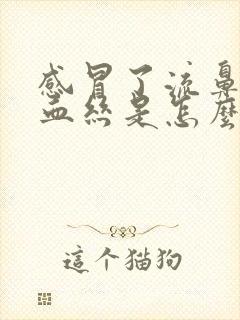 感冒了流鼻
血丝是怎麼
這个猫狗